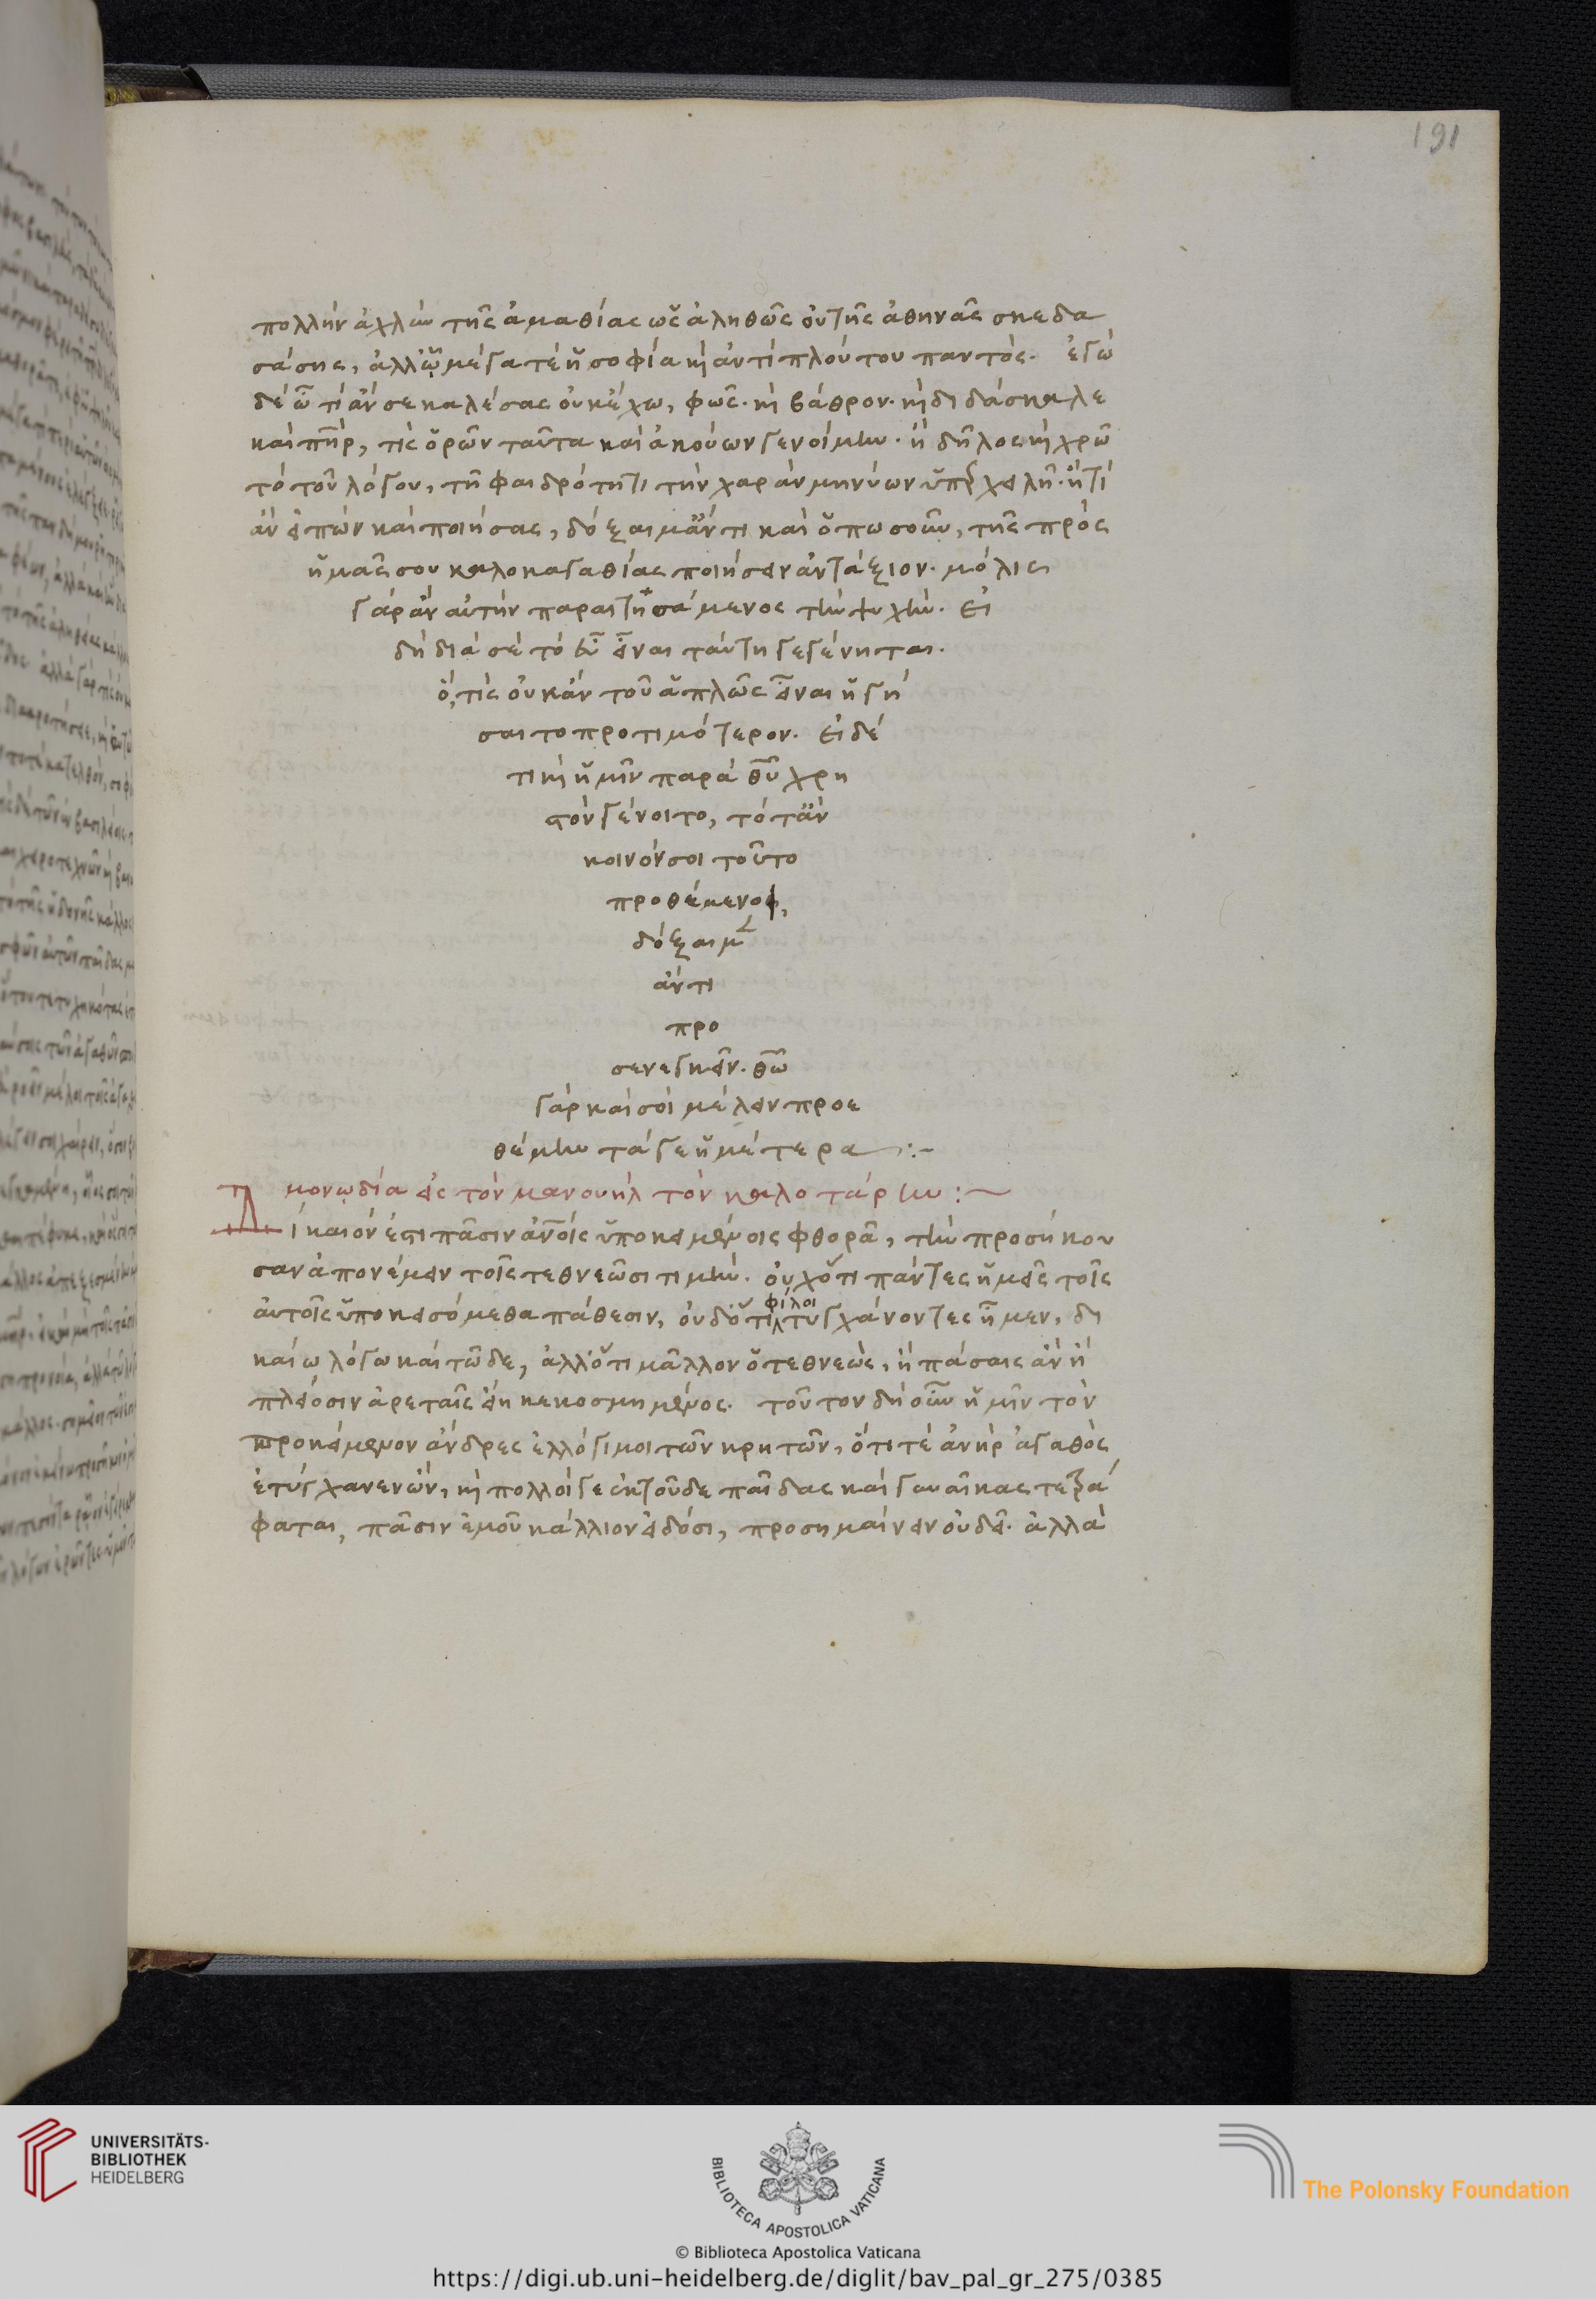 191
πολλὴν ἀχλὺν τῆς ἀμαθίας ὡς ἀληθῶς οὕτης ἀθηνᾶς σκεδα
σάσης, ἀλλ' ᾧ μέγα τὲ ἡ σοφία κỳ ἀντὶ πλούτου παντός. ἐγὼ
δὲ ὦ τί ἄν σε καλέσας οὐκ ἔχω, φῶς. κỳ βάθρον. κỳ διδάσκαλε
καὶ πη̃ρ, τίς ὁρῶν ταῦτα καὶ ἀκούων γενοίμην. ἢ δῆλος κỳ χρῶ
τὸ τοῦ λόγου, τῆ φαιδρότητι τὴν χαρὰν μηνύων
ἂν εἰπὼν καὶ ποιήσας, δόξαιμ' ἄν τι καὶ ὁπωσοῦν, τῆς πρὸς
ἡμᾶς σου καλοκαγαθίας ποιήσειν ἀντάξιον. μόλις
γὰρ ἂν αὐτὴν παραιτησάμενος τὴν ψυχήν. εἰ
δὴ διὰ σὲ τὸ εὖ εἶναι ταύτη γεγένηται.
ὅ, τίς οὐκ ἂν τοῦ ἁπλῶς εἶναι ἡγή
σαιτο προτιμότερον. εἰ δέ
τι κỳ ἡμῖν παρὰ θῦ χρη
στὸν γένοιτο, τότ' ἂν
κοινόν σοι τοῦτο
προθέμενος,
δόξαιμ
ἄν τι
προ
σενεγκεῖν. θῶ
γὰρ καὶ σοὶ μέλειν προε
θέμην τά γε ἡμέτερα :-
μονῳδία εἰς τὸν μανουὴλ τὸν καλοτάρην :~
Δίκαιόν ἐστι πᾶσιν ἀνοῖς ὑποκειμένοις φθορᾶ, τὴν προσήκου
σαν ἀπονέμειν τοῖς τεθνεῶσι τιμήν. οὐχ ὅτι πάντες ἡμεῖς τοῖς
αὐτοῖς ὑποκεισόμεθα πάθεσιν, οὐδ' ὅτι φίλοι τυγχάνοντες ἦμεν, δι
καίω λόγω καὶ τῶδε, ἀλλ' ὅτι μᾶλλον ὁ τεθνεὼς, ἢ πάσαις ἂν ἢ
πλείοσιν ἀρεταῖς εἴη κεκοσμημένος. τοῦτον δὴ οὖν ἡμῖν τὸν
προκείμενον ἄνδρες ἐλλόγιμοι τῶν κρητῶν, ὅτι τὲ ἀνὴρ ἀγαθὸς
ἐτύγχανεν ὢν, κỳ πολλοί γε ἐκ τοῦδε παῖδας καὶ γυναῖκας τετρά
φαται, πᾶσιν ἐμοῦ κάλλιον εἰδόσι, προσημαίνειν οὐ δεῖ. ἀλλὰ
UNIVERSITÄTS-
BIBLIOTHEK
HEIDELBERG
BIBLIOTECA APOSTOLICA VATICANA
The Polonsky Foundation
© Biblioteca Apostolica Vaticana
https://digi.ub.uni-heidelberg.de/diglit/bav_pal_gr_275/0385